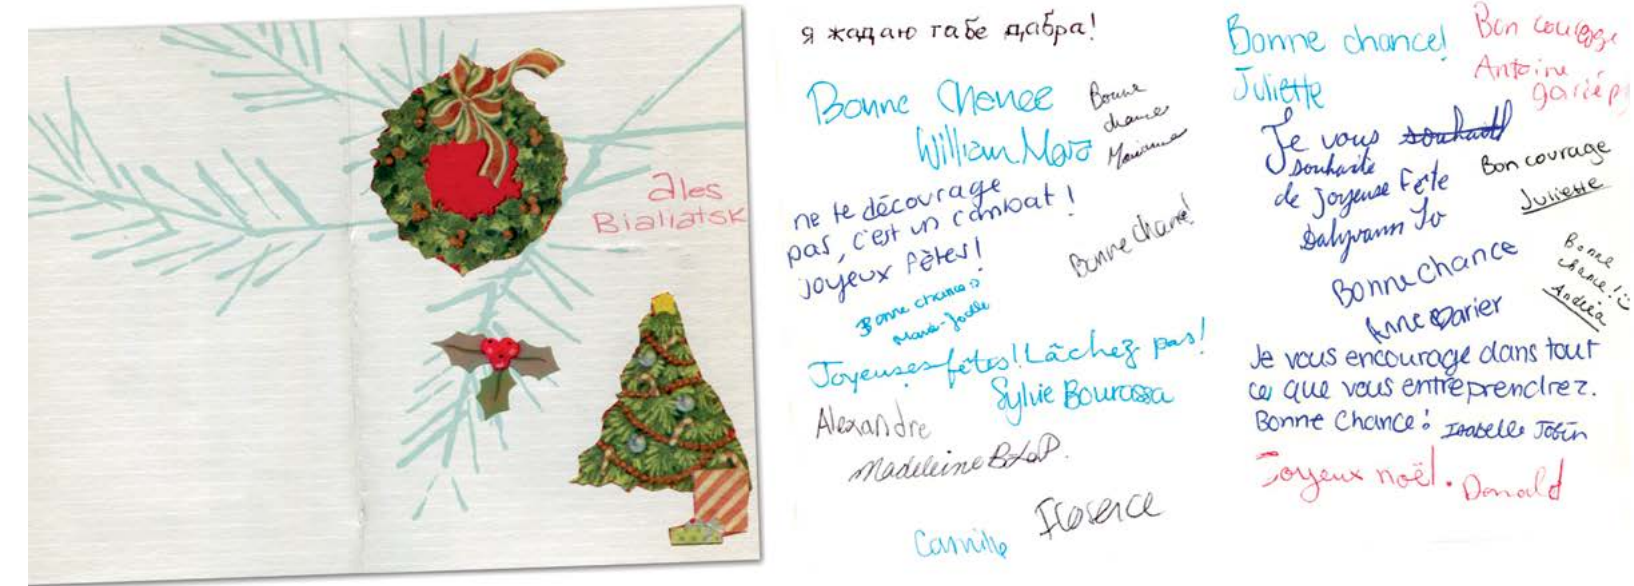 ales
Bialiatsk
я жадаю табе дабра!
Bonne Chance
William
Bonne
chance
Marianne
ne te décourage
pas, c'est un combat !
joyeux fêtes!
Bonne chance!
Bonne chance
Marie-Joëlle
Joyeuses fêtes! Lâchez pas!
Sylvie Bourassa
Alexandre
Madeleine
Florence
Camille
Bonne chance!
Juliette
Bon courage
Antoine
gariép
Je vous souhait
souhaite
de joyeuse Fête
Bon courage
Juliette
Bonne Chance
Anne
Bonne
chance!
Andréa
Je vous encourage dans tout
ce que vous entreprendrez.
Bonne Chance! Isabelle Jobin
Joyeux noël. Donald